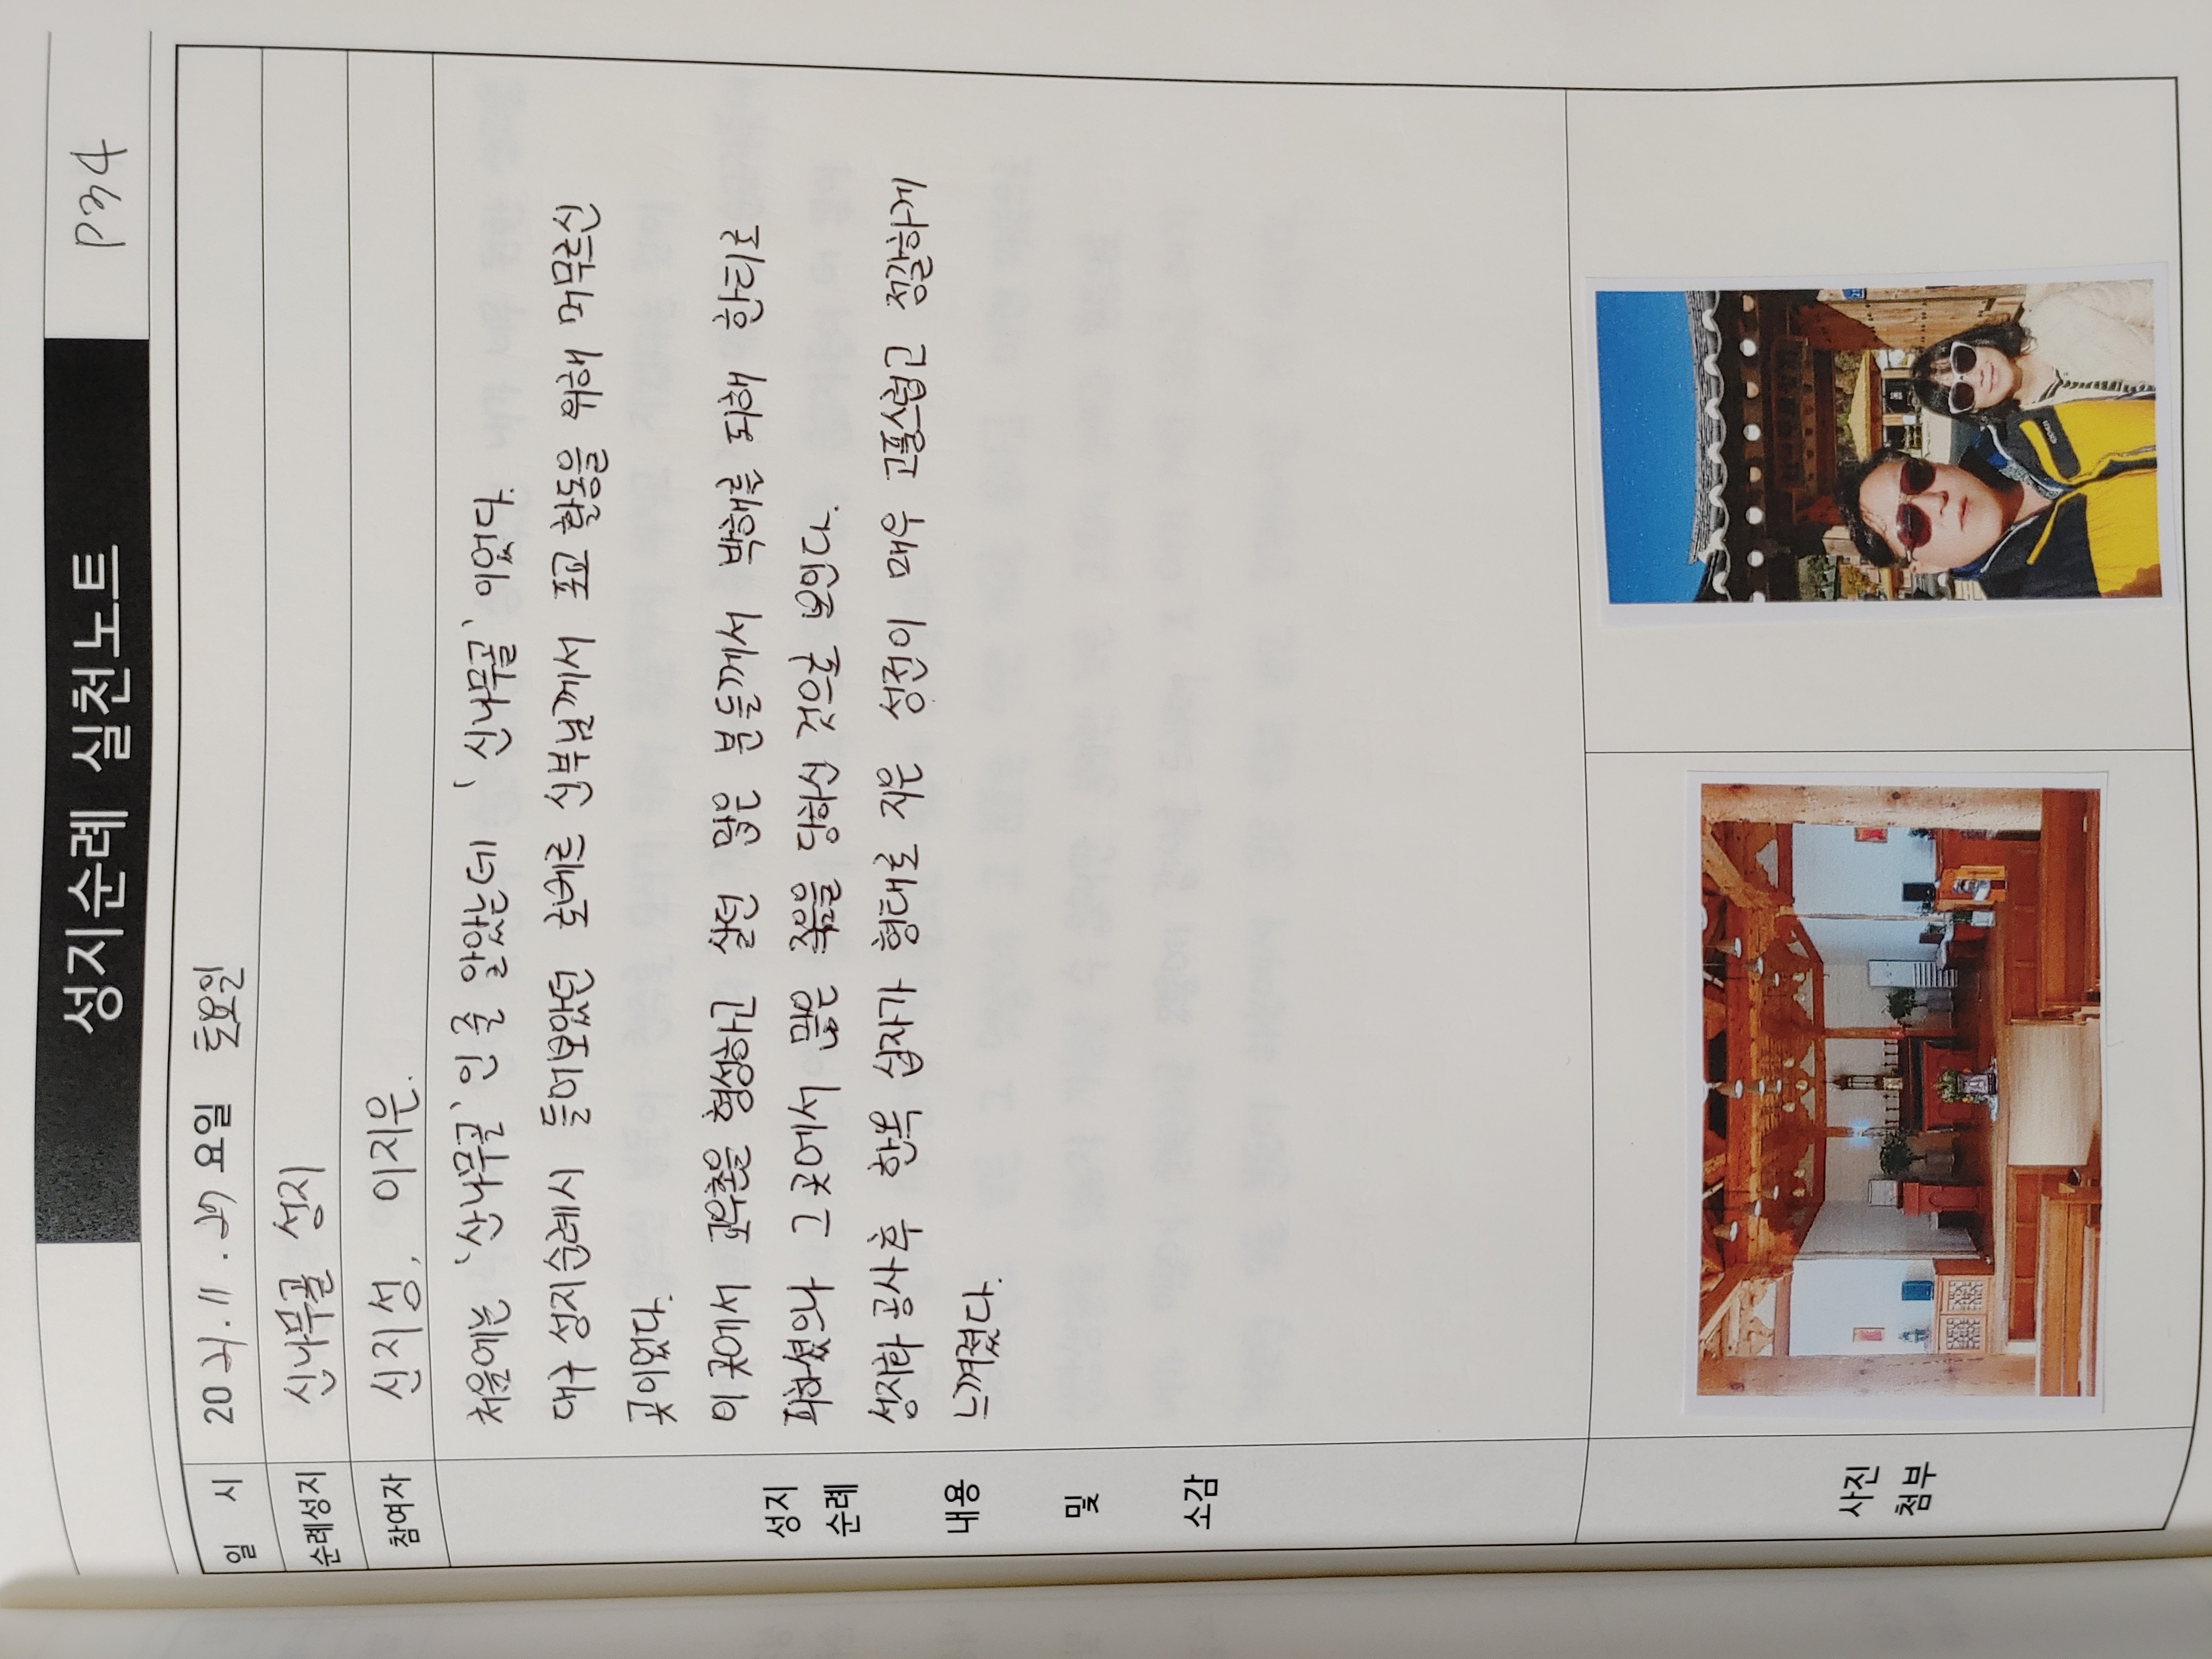 성지순례 실천노트
P34
일 시 2021.11.27 요일 토요일
순례성지 신나무골 성지
참여자 신지성, 이지은.
처음에는 '산나무골'인 줄 알았는데 '신나무골'이었다.
대구 성지순례시 들어보았던 로베르 신부님께서 포교 활동을 위해 머무르신
곳이었다.
이 곳에서 교우촌을 형성하고 살던 많은 분들께서 박해를 피해 한티로
피하셨으나 그 곳에서 많은 죽음을 당하신 것으로 보인다.
성지화 공사 후 한옥 십자가 형태로 지은 성전이 매우 고풍스럽고 정갈하게
느껴졌다.
성지
순례
내용
및
소감
사진
첨부